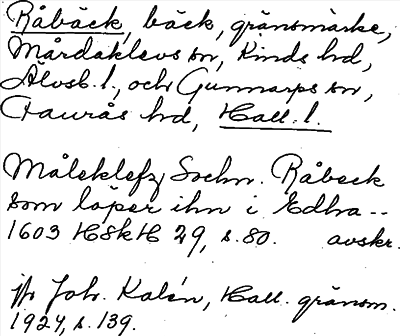 Råbäck, bäck, gränsmärke,
Mårdaklevs sn, Kinds hd,
Älvsb. l., och Gunnarps sn,
Faurås hd, Hall. l.
Måleklefz Sochn. Råbeck
som löper ihn i Edhra--
1603 HSkH 29, s. 80. avskr.
jfr Joh. Kalén, Hall. gränsm.
1924, s. 139.